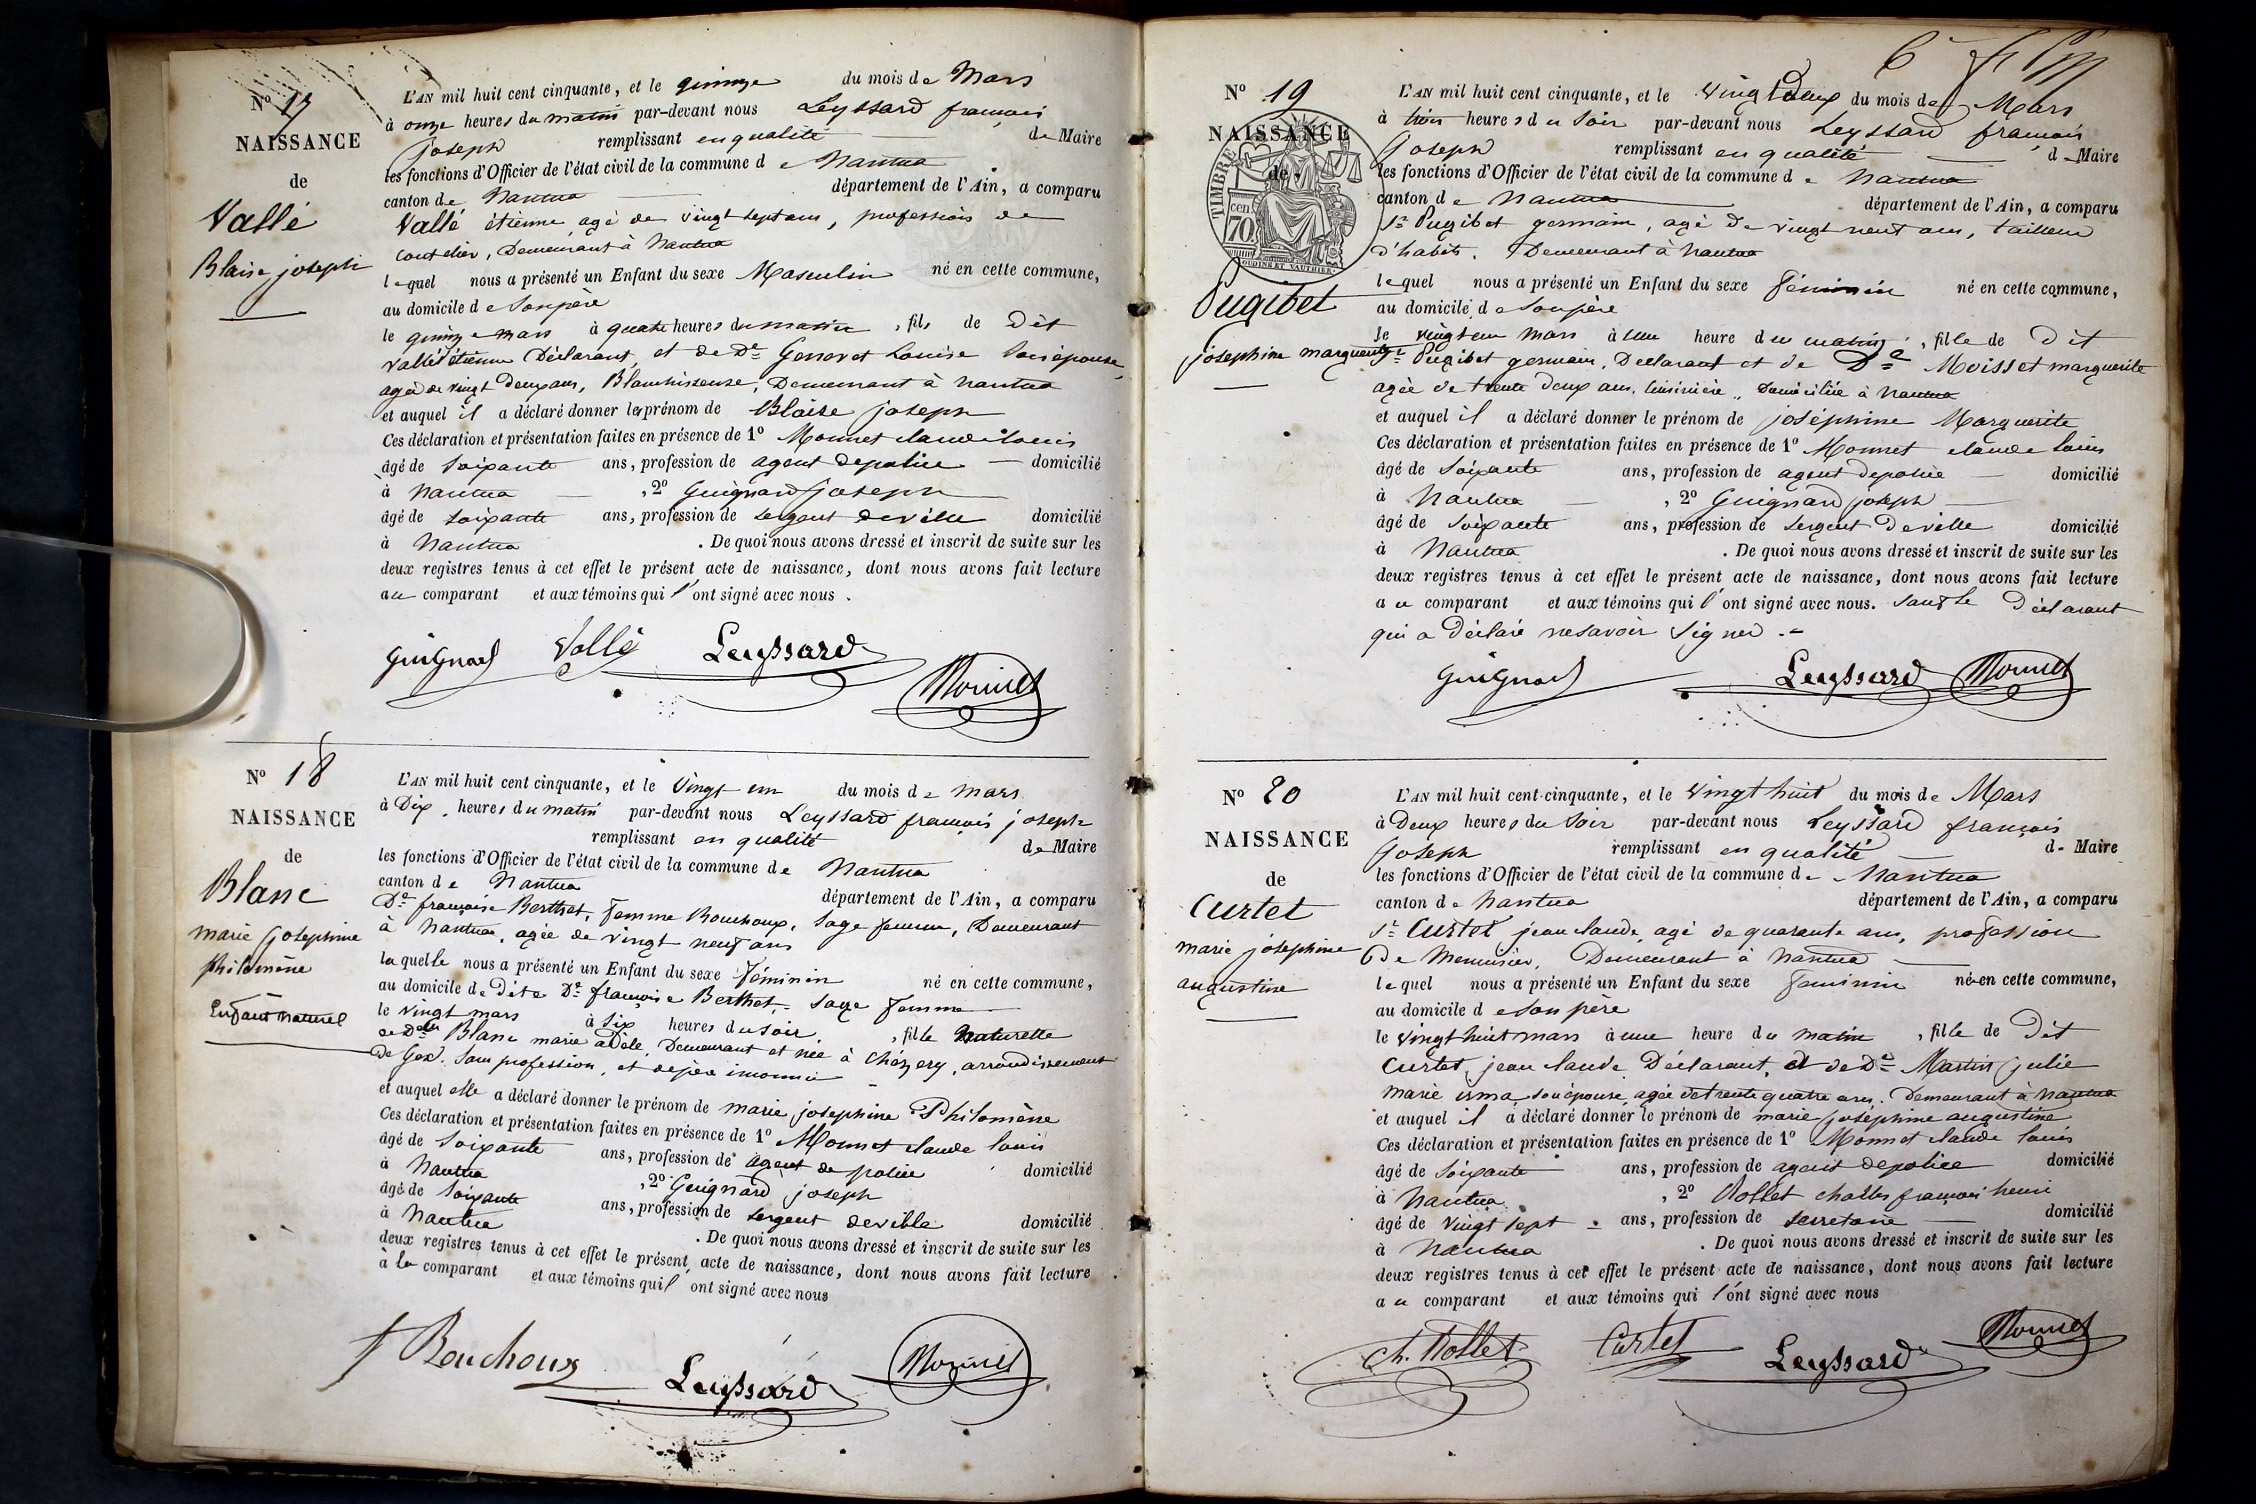 N° 17
NAISSANCE
de
Vallé
Blaise joseph
L'AN mil huit cent cinquante, et le quinze du mois de Mars
à onze heures du matin par-devant nous Leyssard françois
joseph remplissant en qualité de Maire
les fonctions d'Officier de l'état civil de la commune de Nantua
canton de Nantua département de l'Ain, a comparu
Vallé étienne agé de vingt sept ans, profession de
coutelier, Demeurant à Nantua
lequel nous a présenté un Enfant du sexe Masculin né en cette commune,
au domicile de son père
le quinze mars à quatre heures du matin, fils de Dit
Vallé étienne Déclarant et de De Louise son épouse,
agée de vingt deux ans, Blanchisseuse, Demeurant à Nantua
et auquel il a déclaré donner les prénom de Blaise joseph
Ces déclaration et présentation faites en présence de 1° Monnet claude louis
âgé de soixante ans, profession de agent de police domicilié
à Nantua, 2° Guignard joseph
âgé de soixante ans, profession de sergent de ville domicilié
à Nantua. De quoi nous avons dressé et inscrit de suite sur les
deux registres tenus à cet effet le présent acte de naissance, dont nous avons fait lecture
au comparant et aux témoins qui l'ont signé avec nous.
Guignard Vallé Leyssard Monnet
N° 18
NAISSANCE
de
Blanc
marie josephine
philomène
Enfant naturel
L'AN mil huit cent cinquante, et le vingt un du mois de mars
à Dix heures du matin par-devant nous Leyssard françois joseph
remplissant en qualité de Maire
les fonctions d'Officier de l'état civil de la commune de Nantua
canton de Nantua département de l'Ain, a comparu
De françoise Berthet, femme Bouchoux, sage femme, Demeurant
à Nantua, agée de vingt neuf ans
laquelle nous a présenté un Enfant du sexe féminin né en cette commune,
au domicile de dite De françoise Berthet, sage femme
le vingt mars à six heures du soir, fille naturelle
de Blanc marie adèle, Demeurant et née à Chézery, arrondissement
de Gex. Sans profession, et de père inconnu
et auquel elle a déclaré donner le prénom de marie josephine Philomène
Ces déclaration et présentation faites en présence de 1° Monnet claude louis
âgé de soixante ans, profession de agent de police domicilié
à Nantua, 2° Guignard joseph
âgé de soixante ans, profession de sergent de ville domicilié
à Nantua. De quoi nous avons dressé et inscrit de suite sur les
deux registres tenus à cet effet le présent acte de naissance, dont nous avons fait lecture
à la comparant et aux témoins qui l'ont signé avec nous
f Bouchoux Leyssard Monnet
N° 19
NAISSANCE
de
TIMBRE
cen
70
OUDINE ET VAUTHIER
Pugibet
josephine marguerite
L'AN mil huit cent cinquante, et le vingt Deux du mois de Mars
à trois heures du soir par-devant nous Leyssard françois
joseph remplissant en qualité de Maire
les fonctions d'Officier de l'état civil de la commune de Nantua
canton de Nantua département de l'Ain, a comparu
Sr Pugibet germain, agé de vingt neuf ans, tailleur
d'habits. Demeurant à Nantua
lequel nous a présenté un Enfant du sexe féminin né en cette commune,
au domicile de son père
le vingt un mars à une heure du matin, fille de Dit
Sr Pugibet germain, Déclarant et de De Moisset marguerite
agée de trente deux ans, cuisinière, Domiciliée à Nantua
et auquel il a déclaré donner le prénom de joséphine Marguerite
Ces déclaration et présentation faites en présence de 1° Monnet claude louis
âgé de soixante ans, profession de agent de police domicilié
à Nantua, 2° Guignard joseph
âgé de soixante ans, profession de sergent de ville domicilié
à Nantua. De quoi nous avons dressé et inscrit de suite sur les
deux registres tenus à cet effet le présent acte de naissance, dont nous avons fait lecture
au comparant et aux témoins qui l'ont signé avec nous. sauf le Déclarant
qui a Déclaré ne savoir signer.
Guignard Leyssard Monnet
N° 20
NAISSANCE
de
Curtet
marie joséphine
augustine
L'AN mil huit cent cinquante, et le vingt huit du mois de Mars
à Deux heures du soir par-devant nous Leyssard françois
joseph remplissant en qualité de Maire
les fonctions d'Officier de l'état civil de la commune de Nantua
canton de Nantua département de l'Ain, a comparu
Sr Curtet jean claude, agé de quarante ans, profession
De Menuisier, Demeurant à Nantua
lequel nous a présenté un Enfant du sexe feminin né en cette commune,
au domicile de son père
le vingt huit mars à une heure du matin, fille de Dit
Curtet, jean claude Déclarant, et de De Martin julie
marie irma, son épouse, agée de trente quatre ans. Demeurant à Nantua
et auquel il a déclaré donner le prénom de marie joséphine augustine
Ces déclaration et présentation faites en présence de 1° Monnet claude louis
âgé de soixante ans, profession de agent de police domicilié
à Nantua, 2° Rollet charles françois henri
âgé de vingt sept ans, profession de secretaire domicilié
à Nantua. De quoi nous avons dressé et inscrit de suite sur les
deux registres tenus à cet effet le présent acte de naissance, dont nous avons fait lecture
au comparant et aux témoins qui l'ont signé avec nous
Ch. Rollet Curtet Leyssard Monnet